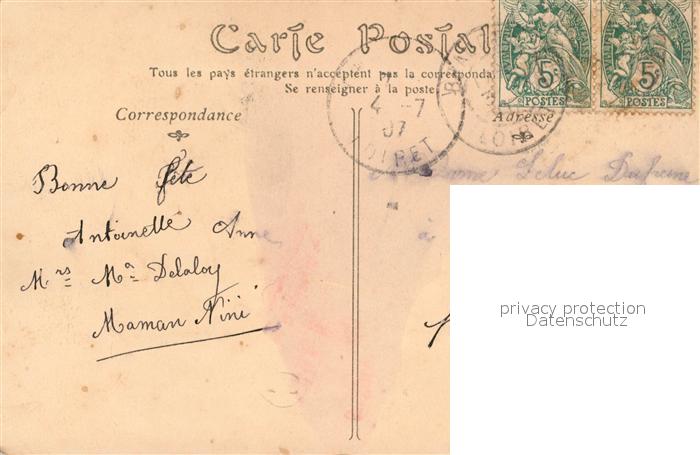 Carte Postale
Tous les pays étrangers n'acceptent pas la correspondance
Se renseigner à la poste
Correspondance
Adresse
5c
POSTES
5c
POSTES
4 -7
07
LOIRET
Bonne fête
Antoinette Anne
Mrs Ma Delaloy
Maman Nini
à
privacy protection
Datenschutz